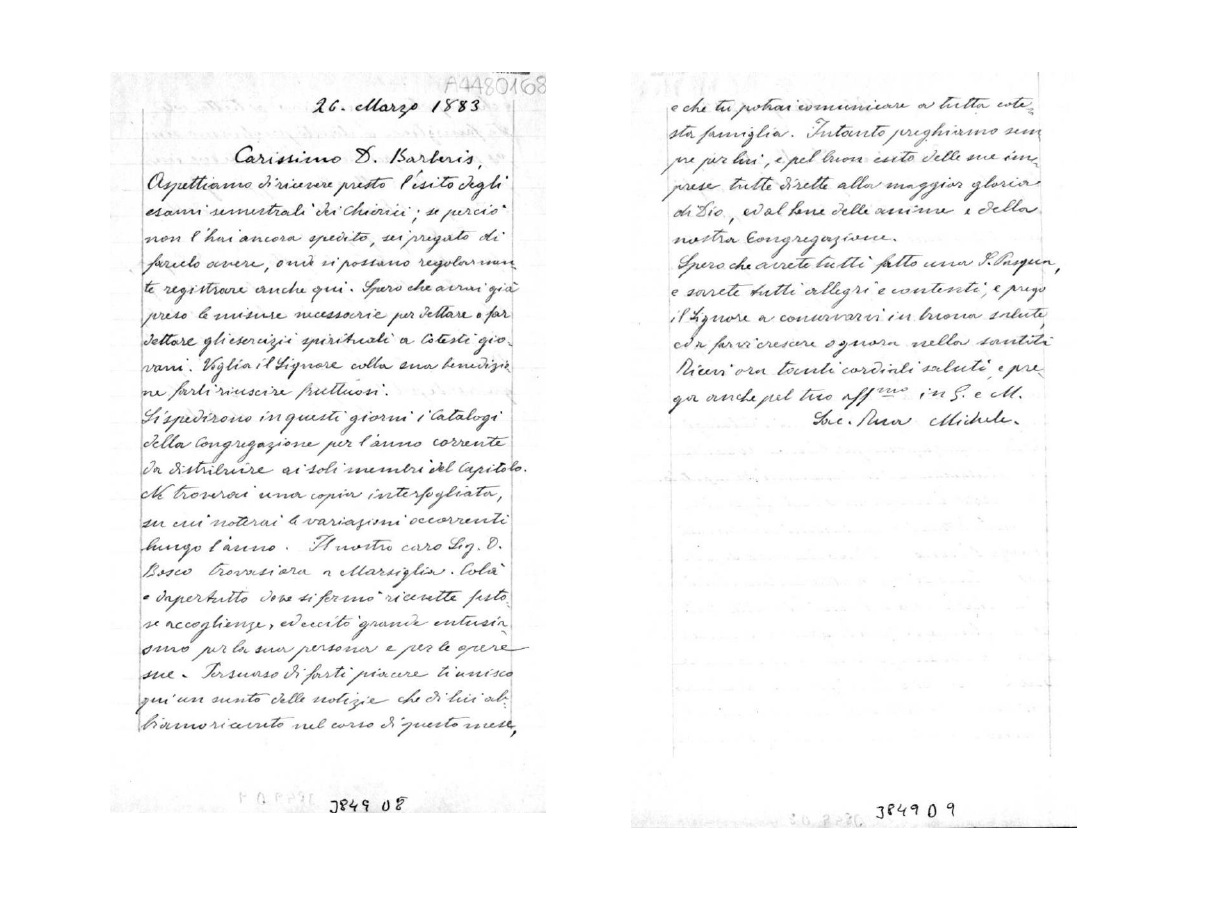 A4480168
26. Marzo 1883
Carissimo D. Barberis,
Aspettiamo di ricevere presto l'esito degli
esami semestrali dei Chierici; se perciò
non l'hai ancora spedito, sei pregato di
farcelo avere, onde si possano regolarmen-
te registrare anche qui. Spero che avrai già
preso le misure necessarie per dettare o far
dettare gli esercizii spirituali a cotesti gio-
vani. Voglia il Signore colla sua benedizio-
ne farli riuscire fruttuosi.
Si spedirono in questi giorni i Catalogi
della Congregazione per l'anno corrente
da distribuire ai soli membri del Capitolo.
Ne troverai una copia interfogliata,
su cui noterai le variazioni occorrenti
lungo l'anno. Il nostro caro Sig. D.
Bosco trovasi ora a Marsiglia. Colà
e dapertutto dove si fermò ricevette festo-
se accoglienze, ed eccitò grande entusia-
smo per la sua persona e per le opere
sue. Persuaso di farti piacere ti unisco
qui un sunto delle notizie che di lui ab-
biamo ricevuto nel corso di questo mese,
J849 D8
e che tu potrai comunicare a tutta cote-
sta famiglia. Intanto preghiamo sem
pre per lui, e pel buon esito delle sue im-
prese tutte dirette alla maggior gloria
di Dio, ed al bene delle anime e della
nostra Congregazione.
Spero che avrete tutti fatto una S. Pasqua,
e sarete tutti allegri e contenti, e prego
il Signore a conservarvi in buona salute,
ed a farvi crescere ognora nella santità
Ricevi ora tanti cordiali saluti, e pre-
ga anche pel tuo aff.mo in G. e M.
Sac. Rua Michele.
J849 D9